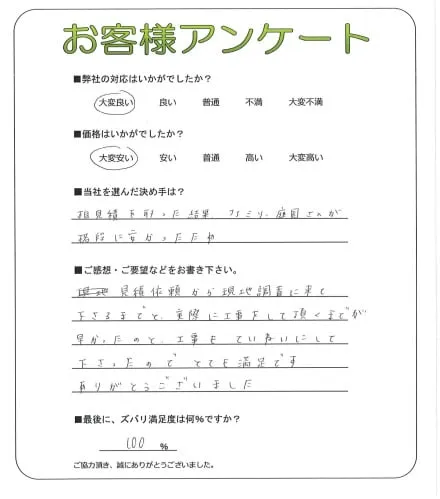 お客様アンケート
■弊社の対応はいかがでしたか?
大変良い 良い 普通 不満 大変不満
■価格はいかがでしたか?
大変安い 安い 普通 高い 大変高い
■当社を選んだ決め手は?
相見積を取った結果、ファミリー庭園さんが
格段に安かったため
■ご感想・ご要望などをお書き下さい。
見積依頼から現地調査に来て
下さるまでと、実際に工事をして頂くまでが
早かったのと、工事もていねいにして
下さったので とても満足です
ありがとうございました
■最後に、ズバリ満足度は何%ですか?
100 %
ご協力頂き、誠にありがとうございました。